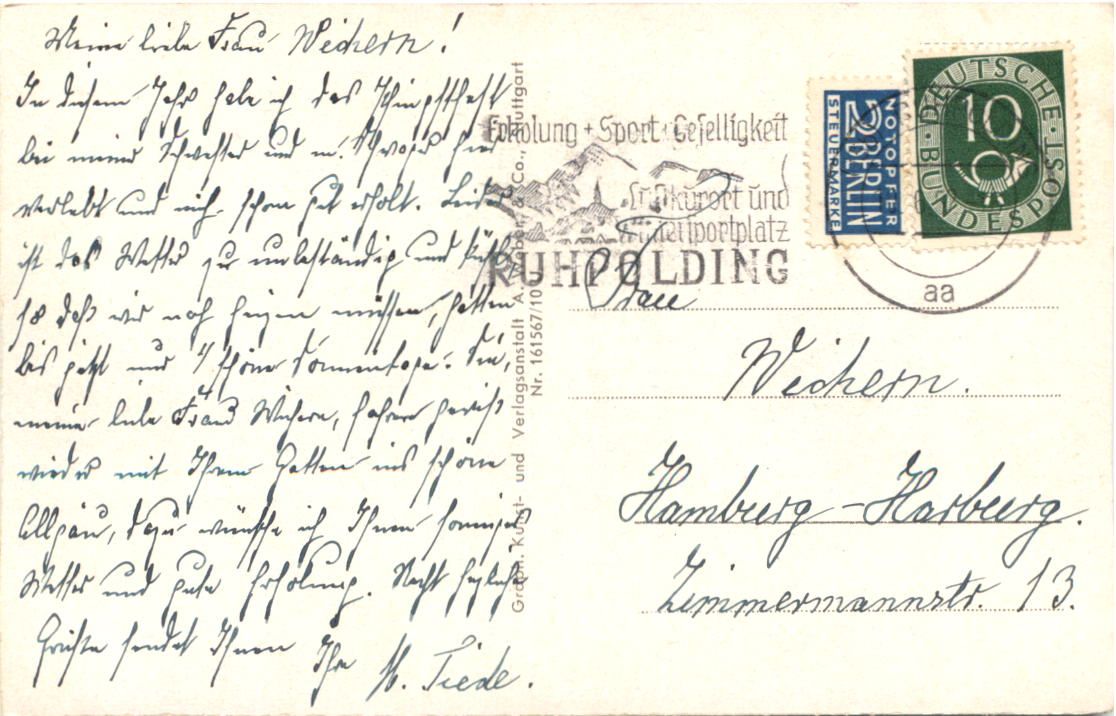 Meine liebe Frau Wichern!
In diesem Jahr habe ich das Pfingstfest
bei meiner Schwester und m. Schwager hier
verlebt und mich schon gut erholt. Leider
ist das Wetter zu unbeständig und kühl,
so daß wir noch heizen müssen, hatten
bis jetzt nur 4 schöne Sonnentage. Sie,
meine liebe Frau Wichern, fahren gewiß
wieder mit Ihrem Gatten ins schöne
Allgäu, dazu wünsche ich Ihnen sonniges
Wetter und gute Erholung. Recht herzliche
Grüße sendet Ihnen Ihre M. Tiede.
Graph. Kunst- und Verlagsanstalt & Co., Stuttgart
Nr. 161567/10
Erholung + Sport + Geselligkeit
Luftkurort und
Wintersportplatz
RUHPOLDING
NOTOPFER
2 BERLIN
STEUERMARKE
DEUTSCHE
10
BUNDESPOST
aa
Frau
Wichern.
Hamburg-Harburg.
Zimmermannstr. 13.